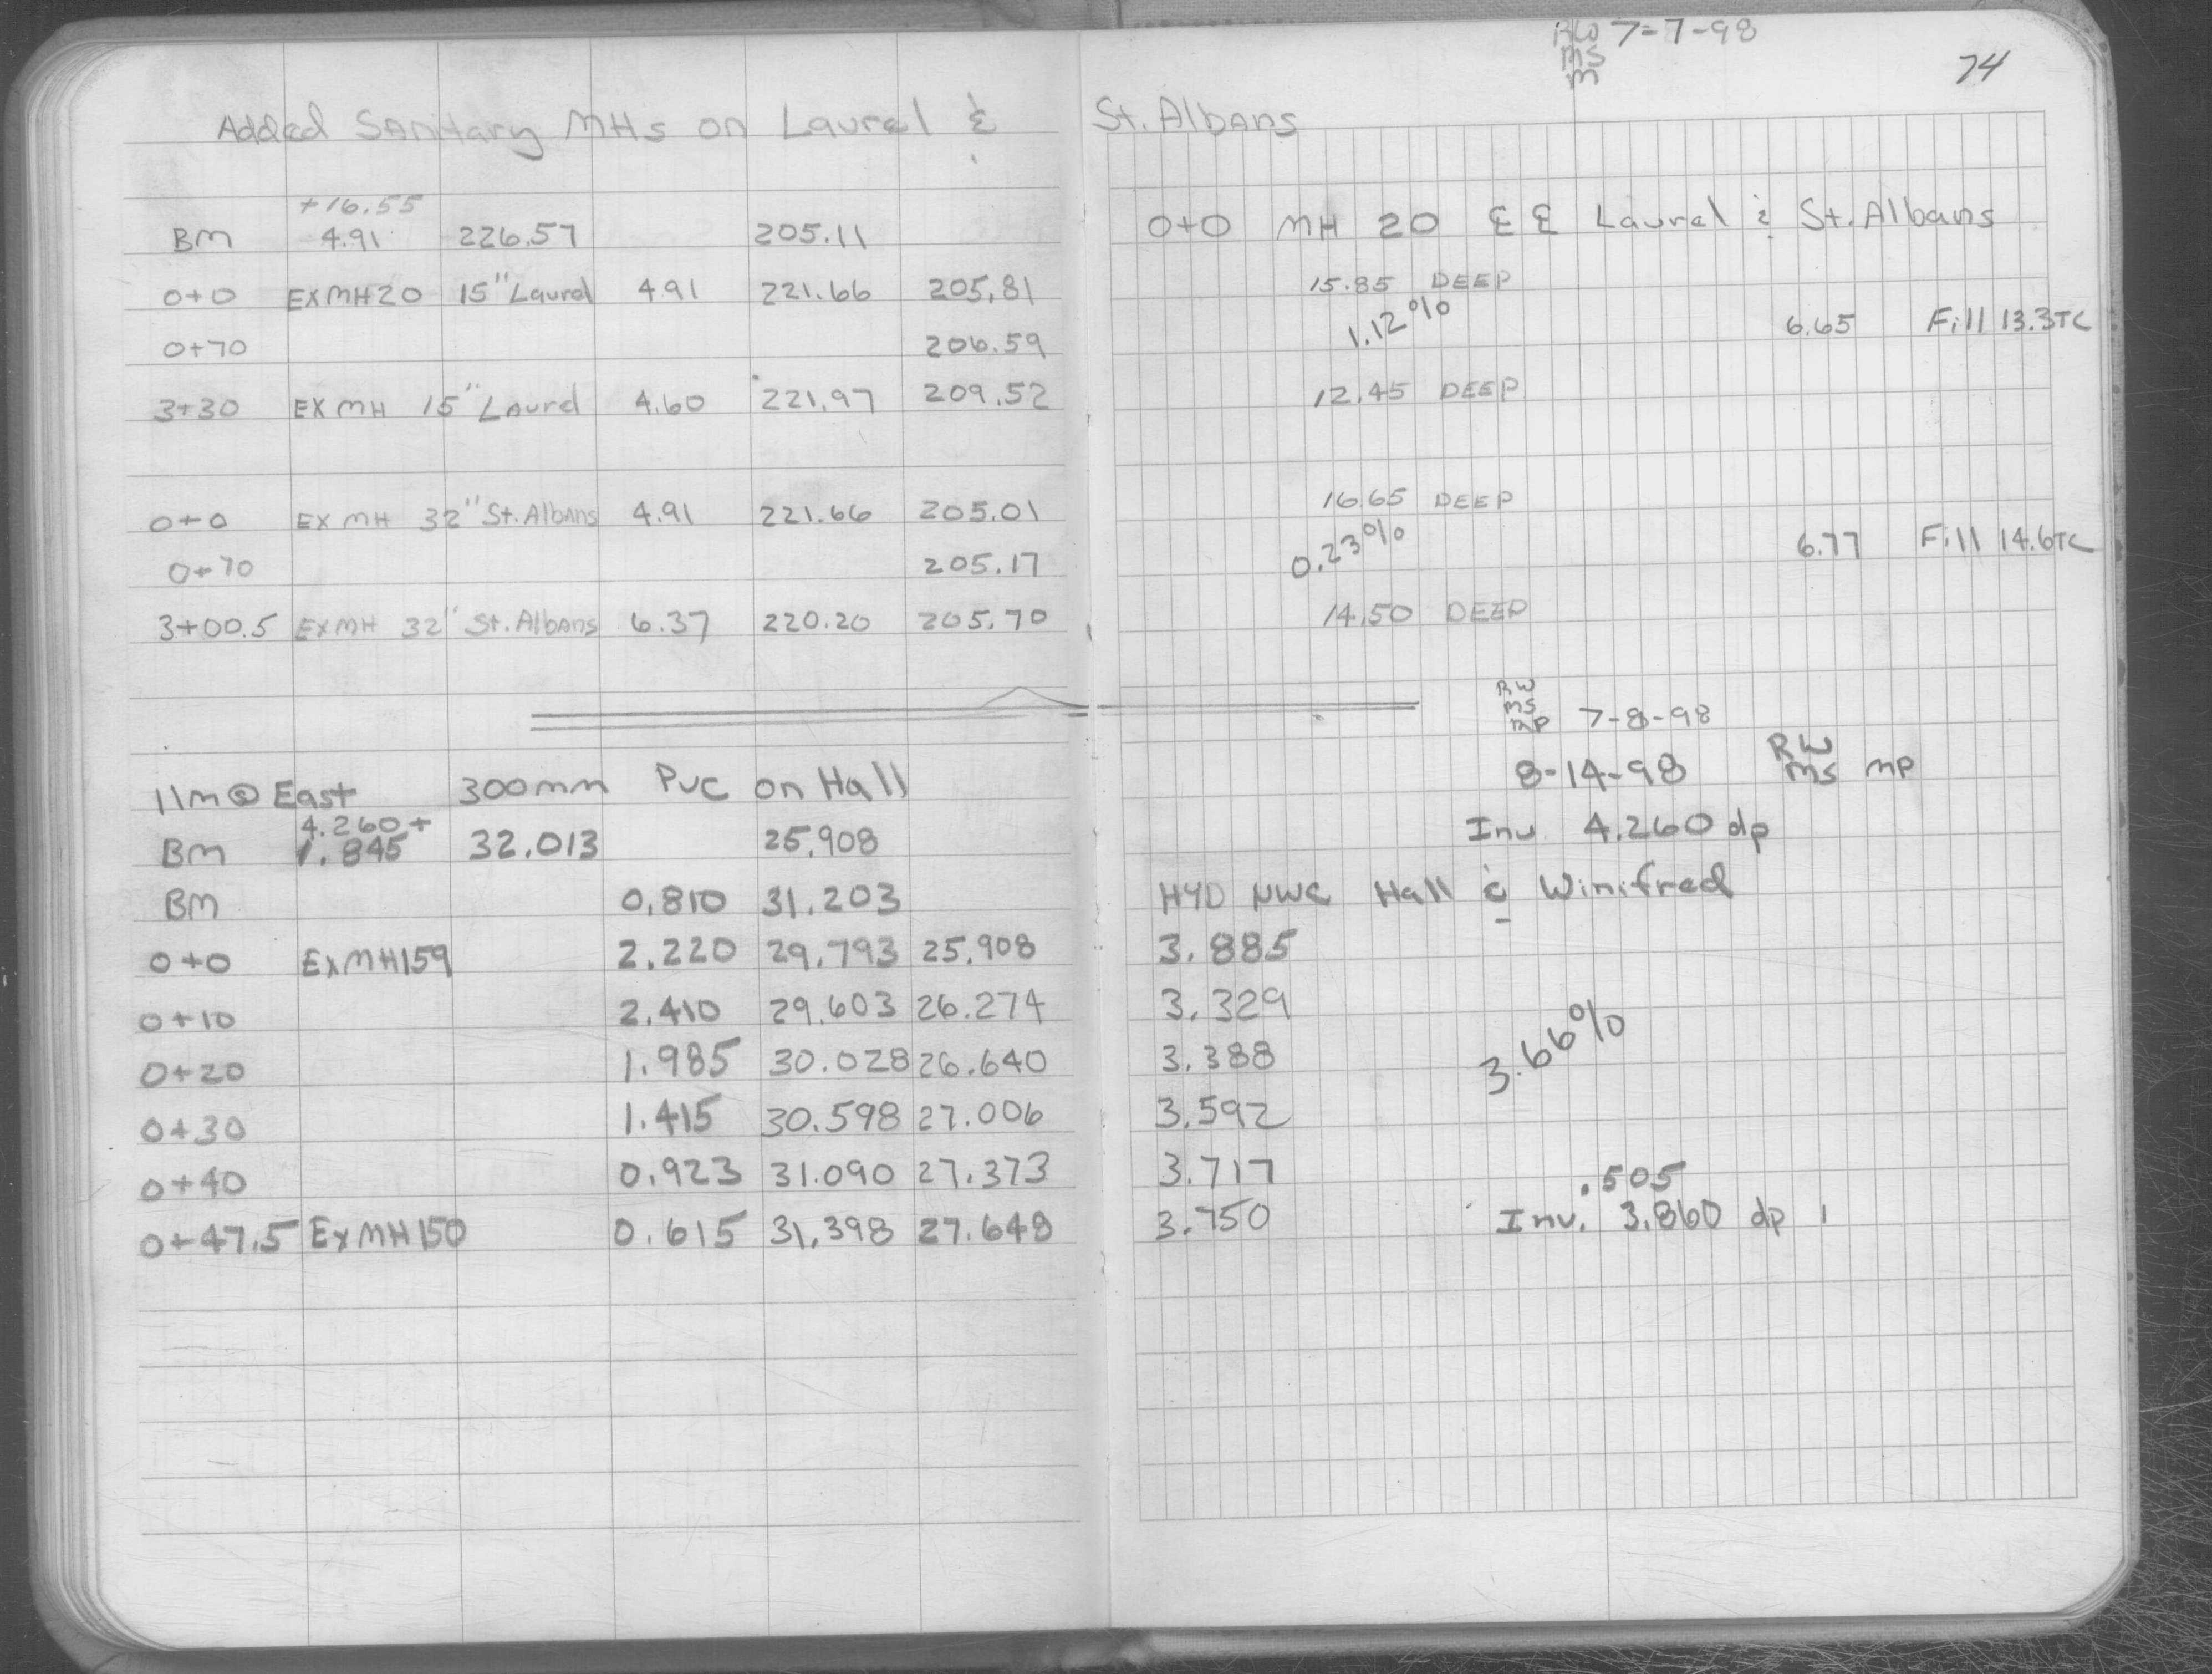 RW 7-7-98
MS
M
74
Added Sanitary MHs on Laurel & St. Albans
+16.55
BM 4.91 226.57 205.11 0+0 MH 20 ℄ ℄ Laurel & St. Albans
0+0 EXMH20 15" Laurel 4.91 221.66 205.81 15.85 DEEP
0+70 206.59 1.12% 6.65 Fill 13.3TC
3+30 EXMH 15" Laurel 4.60 221.97 209.52 12.45 DEEP
0+0 EXMH 32" St. Albans 4.91 221.66 205.01 16.65 DEEP
0+70 205.17 0.23% 6.77 Fill 14.6TC
3+00.5 EXMH 32" St. Albans 6.37 220.20 205.70 14.50 DEEP
RW
MS
MP 7-8-98
11m@East 300mm PVC on Hall 8-14-98 RW MS MP
4.260+
BM 1.845 32.013 25.908 Inv. 4.260 dp
BM 0.810 31.203 HYD NWC Hall & Winifred
0+0 EXMH159 2.220 29.793 25.908 3.885
0+10 2.410 29.603 26.274 3.329
0+20 1.985 30.028 26.640 3.388 3.66%
0+30 1.415 30.598 27.006 3.592
0+40 0.923 31.090 27.373 3.717
.505
0+47.5 EXMH150 0.615 31.398 27.648 3.750 Inv. 3.860 dp